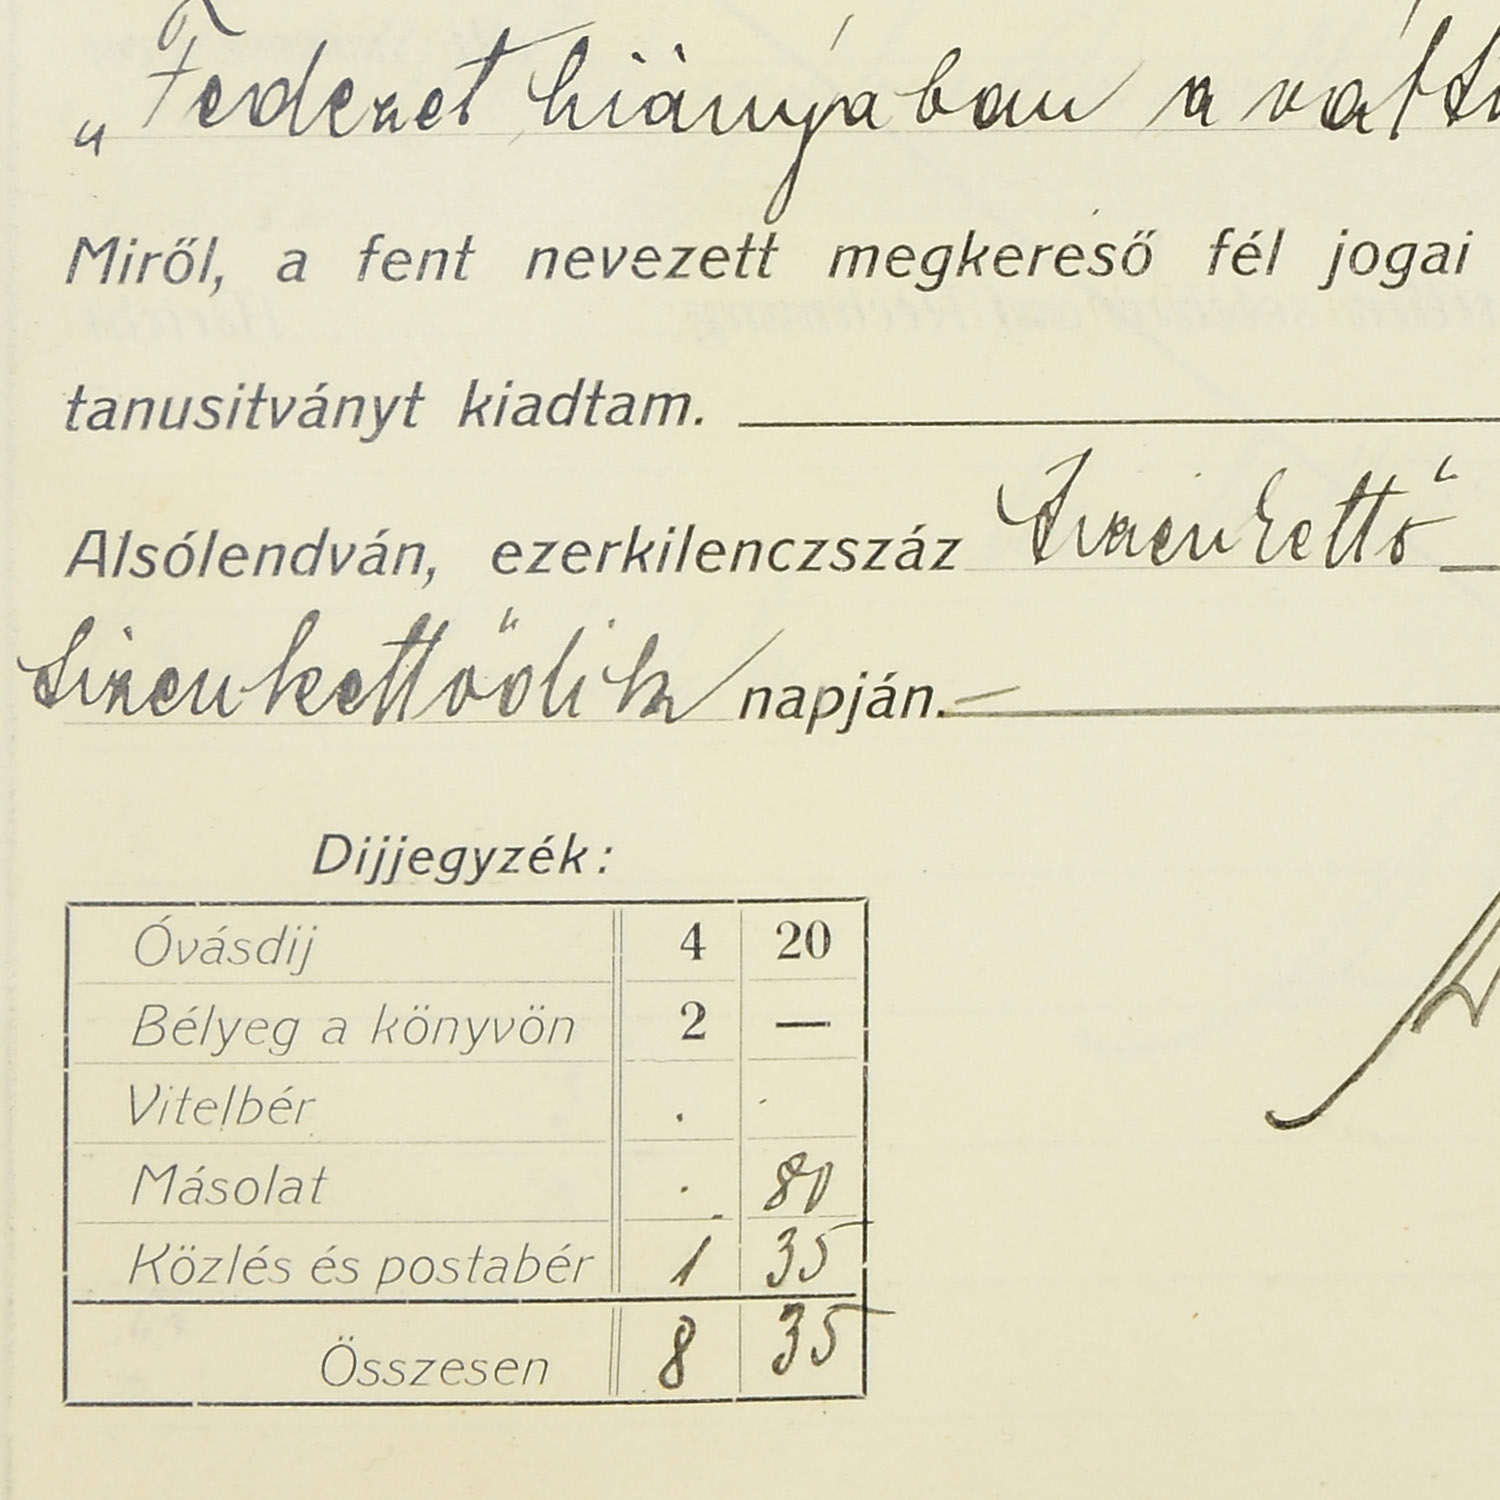 „Fedezet hiányában a vált
Miről, a fent nevezett megkereső fél jogai
tanusitványt kiadtam.
Alsólendván, ezerkilenczszáz tizenkettő
tizenkettődik napján.
Dijjegyzék:
Óvásdij 4 20
Bélyeg a könyvön 2 —
Vitelbér . .
Másolat . 80
Közlés és postabér 1 35
Összesen 8 35